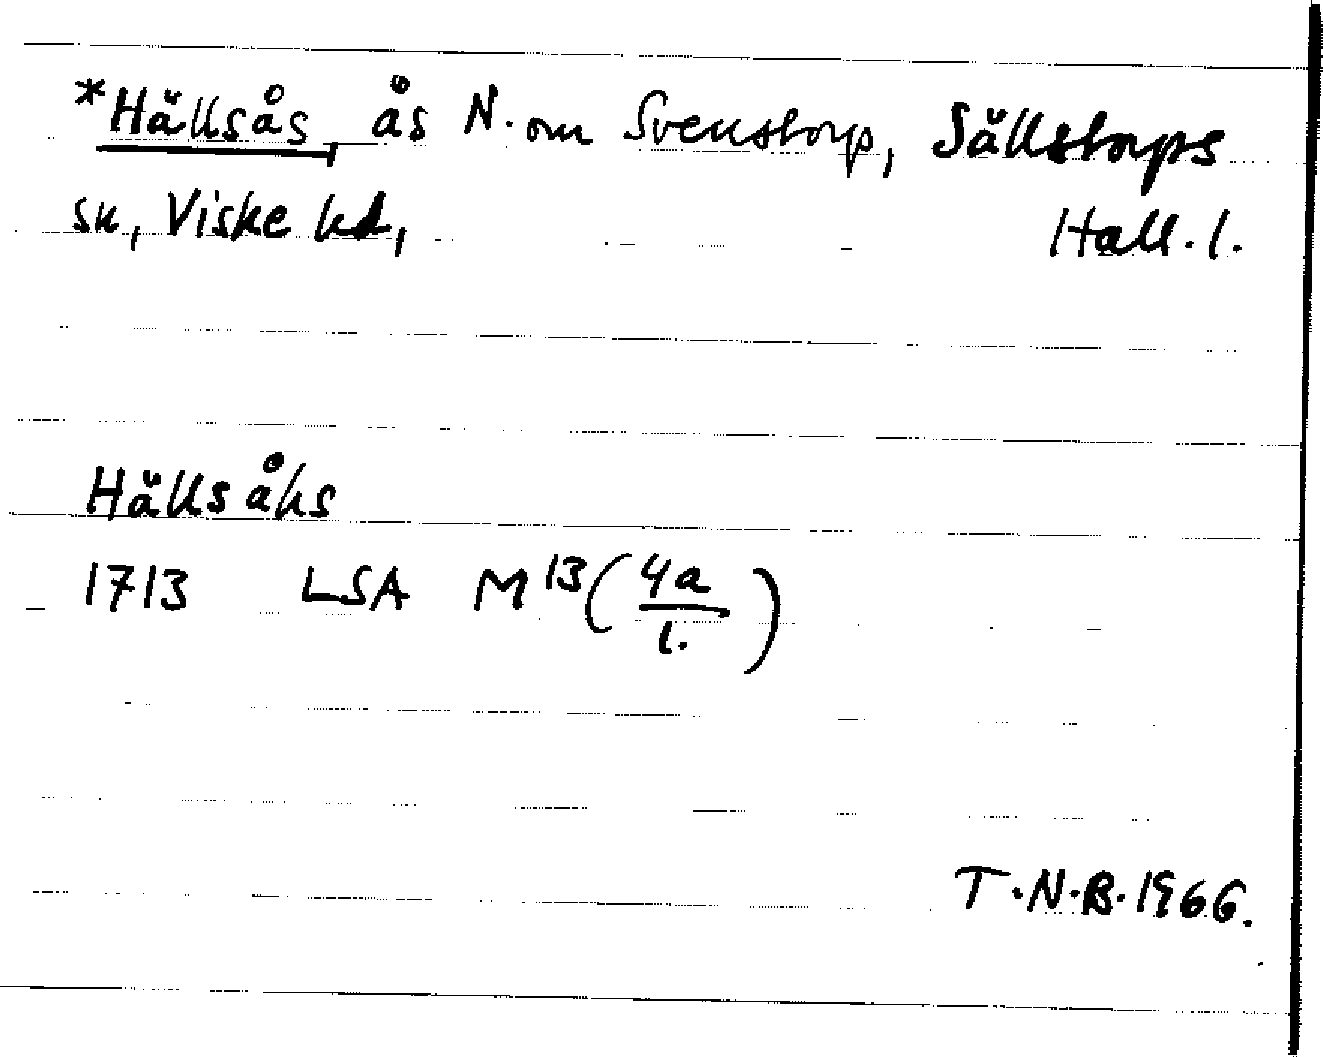 *Hällsås, ås N. om Svenstorp, Sällstorps
sn, Viske hd,
Hall. l.
Hällsåhs
1713 LSA M 13 (4a/1.)
T.N.B. 1966.